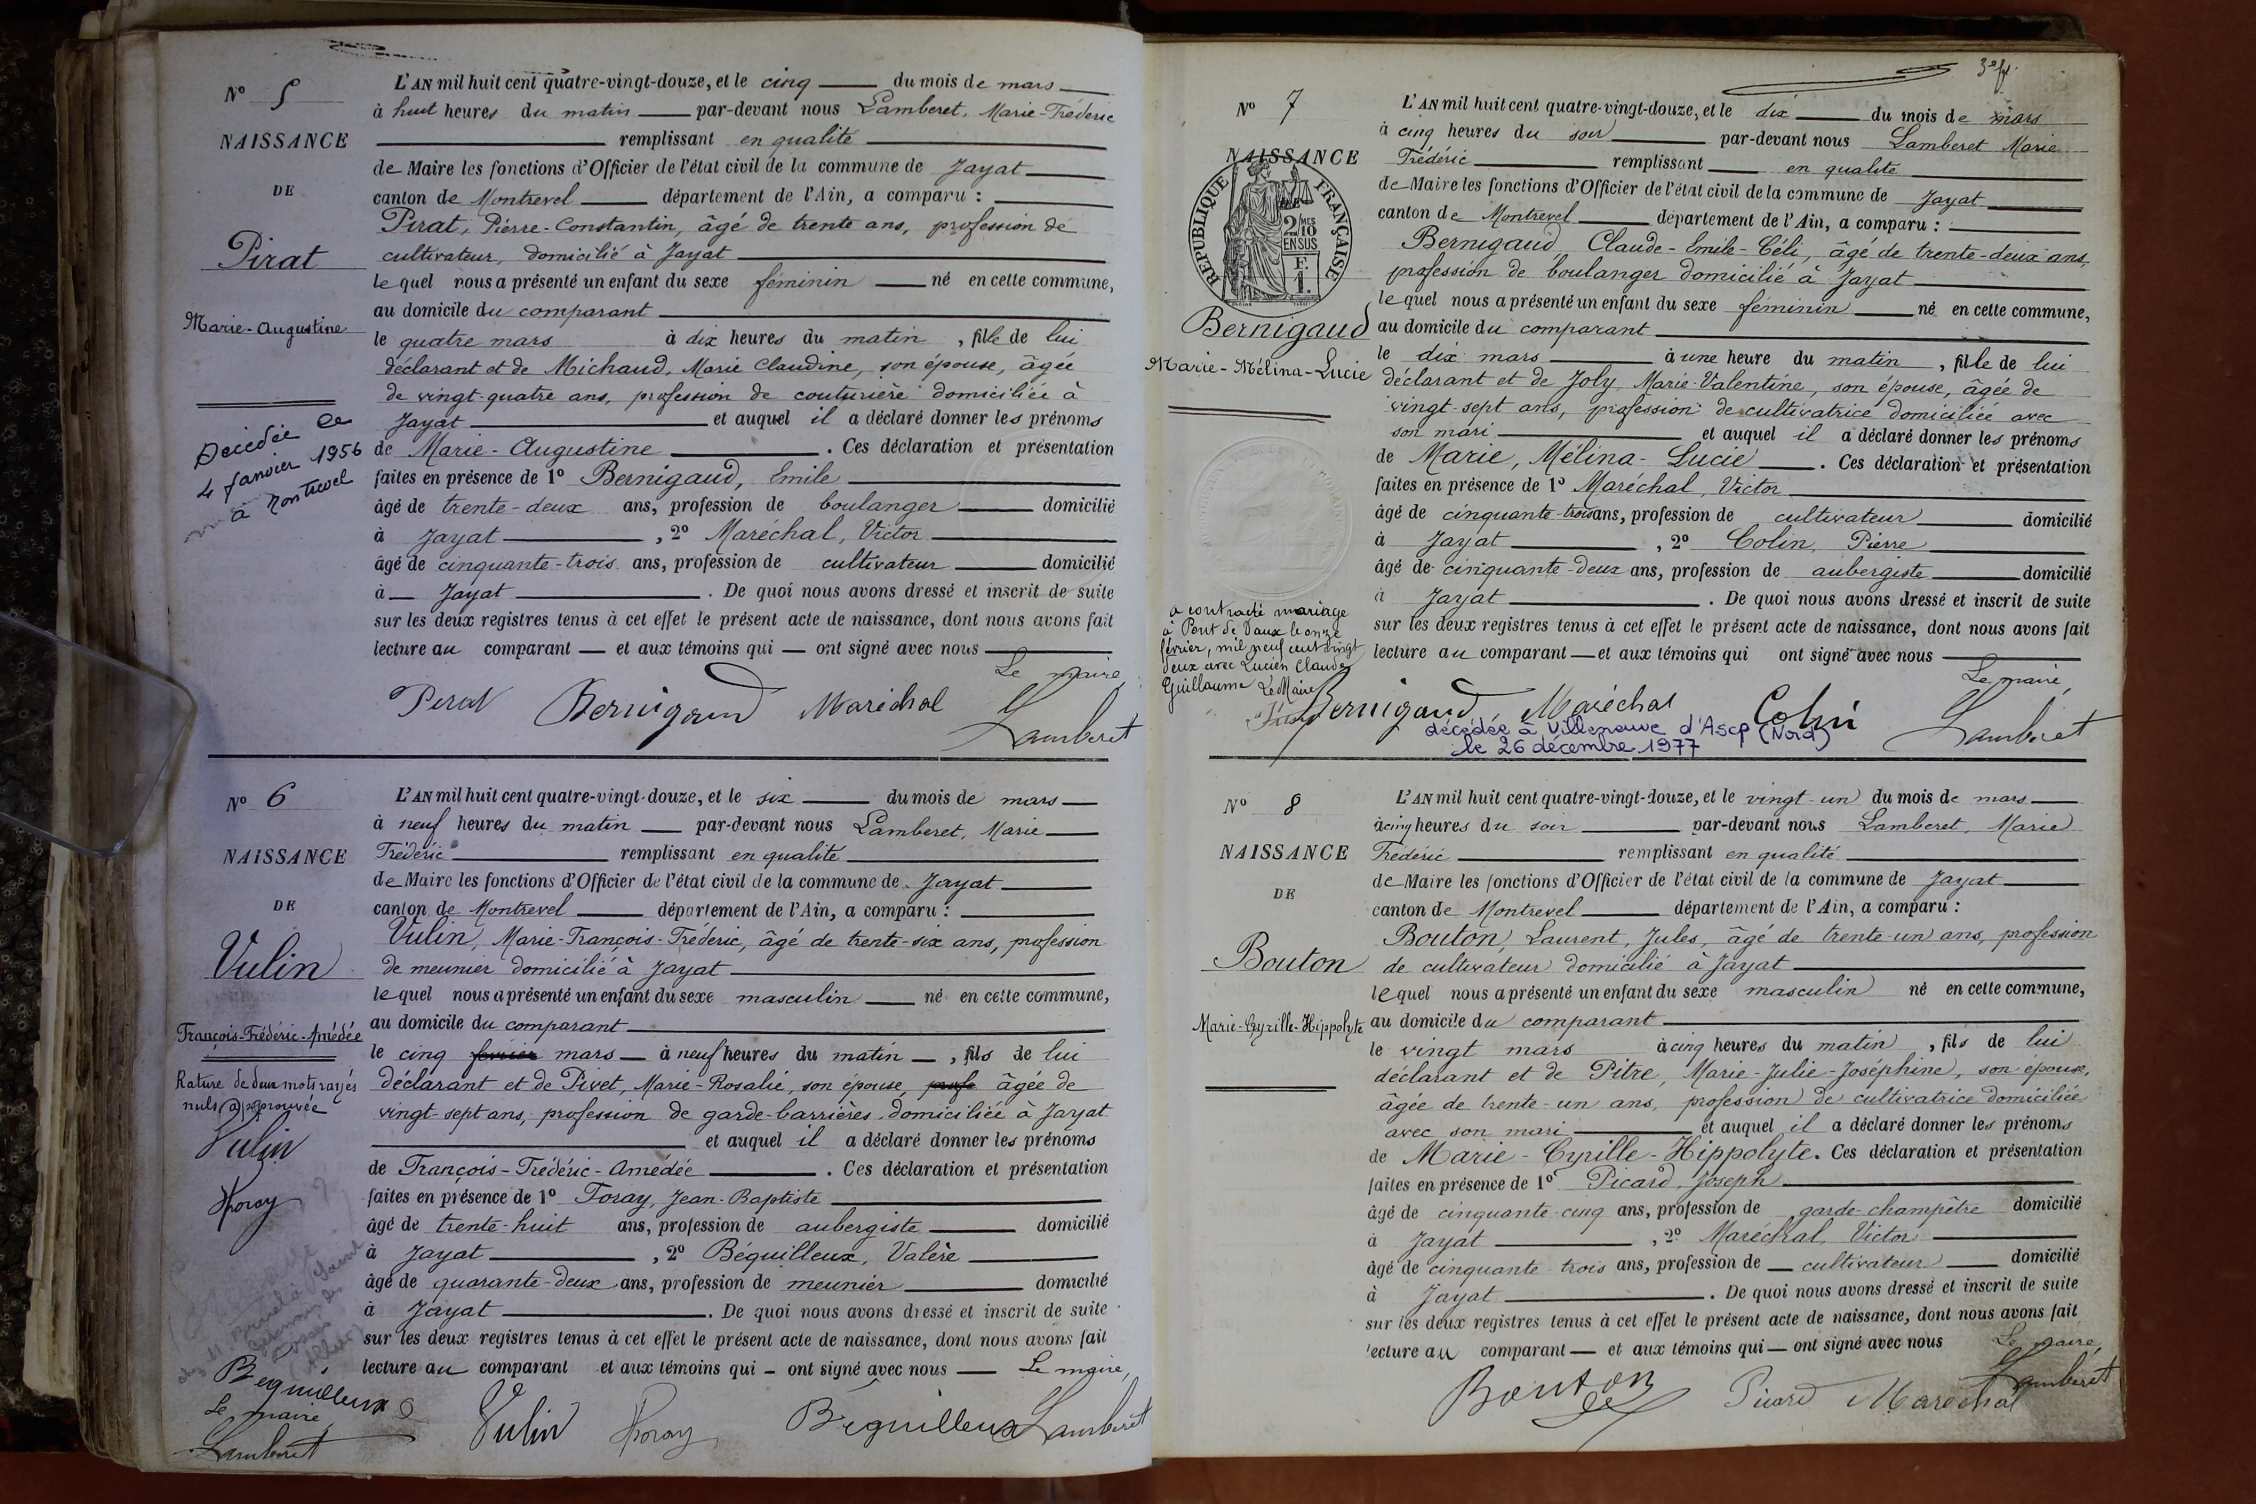 N° 5
NAISSANCE
DE
Pirat
Marie-Augustine
Décédée le
4 janvier 1956
à Montrevel
L'AN mil huit cent quatre-vingt-douze, et le cinq du mois de mars
à huit heures du matin par-devant nous Lamberet, Marie-Fréderic
remplissant en qualité
de Maire les fonctions d'Officier de l'état civil de la commune de Jayat
canton de Montrevel département de l'Ain, a comparu :
Pirat, Pierre-Constantin, âgé de trente ans, profession de
cultivateur, domicilié à Jayat
lequel nous a présenté un enfant du sexe féminin né en cette commune,
au domicile du comparant
le quatre mars à dix heures du matin, fille de lui
déclarant et de Michaud, Marie Claudine, son épouse, âgée
de vingt-quatre ans, profession de couturière domiciliée à
Jayat et auquel il a déclaré donner les prénoms
de Marie-Augustine. Ces déclaration et présentation
faites en présence de 1° Bernigaud, Emile
âgé de trente-deux ans, profession de boulanger domicilié
à Jayat, 2° Maréchal, Victor
âgé de cinquante-trois ans, profession de cultivateur domicilié
à Jayat. De quoi nous avons dressé et inscrit de suite
sur les deux registres tenus à cet effet le présent acte de naissance, dont nous avons fait
lecture au comparant et aux témoins qui ont signé avec nous
Le maire,
Perat Bernigaud Maréchal Lamberet
N° 6
NAISSANCE
DE
Vulin
François-Frédéric-Amédée
Rature de deux mots rayés
nuls approuvée
Vulin
Foray
Béguilleux
Le maire
Lamberet
L'AN mil huit cent quatre-vingt-douze, et le six du mois de mars
à neuf heures du matin par-devant nous Lamberet, Marie
Fréderic remplissant en qualité
de Maire les fonctions d'Officier de l'état civil de la commune de Jayat
canton de Montrevel département de l'Ain, a comparu :
Vulin, Marie-François-Fréderic, âgé de trente-six ans, profession
de meunier domicilié à Jayat
lequel nous a présenté un enfant du sexe masculin né en cette commune,
au domicile du comparant
le cinq février mars à neuf heures du matin, fils de lui
déclarant et de Pivet, Marie-Rosalie, son épouse, profe âgée de
vingt-sept ans, profession de garde-barrières domiciliée à Jayat
et auquel il a déclaré donner les prénoms
de François-Frédéric-Amédée. Ces déclaration et présentation
faites en présence de 1° Foray, Jean-Baptiste
âgé de trente-huit ans, profession de aubergiste domicilié
à Jayat, 2° Béguilleux, Valère
âgé de quarante-deux ans, profession de meunier domicilié
à Jayat. De quoi nous avons dressé et inscrit de suite
sur les deux registres tenus à cet effet le présent acte de naissance, dont nous avons fait
lecture au comparant et aux témoins qui ont signé avec nous Le maire,
Vulin Foray Béguilleux Lamberet
3e ft.
N° 7
NAISSANCE
RÉPUBLIQUE FRANÇAISE
2/10 MES
EN SUS
F.
1.
Bernigaud
Marie-Mélina-Lucie
a contracté mariage
à Pont de Vaux le onze
février, mil neuf cent vingt
deux avec Lucien Claude
Guillaume Le Maire
L'AN mil huit cent quatre-vingt-douze, et le dix du mois de mars
à cinq heures du soir par-devant nous Lamberet Marie
Frédéric remplissant en qualité
de Maire les fonctions d'Officier de l'état civil de la commune de Jayat
canton de Montrevel département de l'Ain, a comparu :
Bernigaud, Claude-Emile-Céli, âgé de trente-deux ans,
profession de boulanger domicilié à Jayat
lequel nous a présenté un enfant du sexe féminin né en cette commune,
au domicile du comparant
le dix mars à une heure du matin, fille de lui
déclarant et de Joly Marie-Valentine, son épouse, âgée de
vingt-sept ans, profession de cultivatrice domiciliée avec
son mari et auquel il a déclaré donner les prénoms
de Marie, Mélina-Lucie. Ces déclaration et présentation
faites en présence de 1° Maréchal, Victor
âgé de cinquante-trois ans, profession de cultivateur domicilié
à Jayat, 2° Colin, Pierre
âgé de cinquante-deux ans, profession de aubergiste domicilié
à Jayat. De quoi nous avons dressé et inscrit de suite
sur les deux registres tenus à cet effet le présent acte de naissance, dont nous avons fait
lecture au comparant et aux témoins qui ont signé avec nous
Le maire,
Bernigaud Maréchal Colin Lamberet
décédée à Villeneuve d'Ascp (Nord)
le 26 décembre 1977
N° 8
NAISSANCE
DE
Bouton
Marie-Cyrille-Hippolyte
L'AN mil huit cent quatre-vingt-douze, et le vingt-un du mois de mars
à cinq heures du soir par-devant nous Lamberet, Marie
Frédéric remplissant en qualité
de Maire les fonctions d'Officier de l'état civil de la commune de Jayat
canton de Montrevel département de l'Ain, a comparu :
Bouton, Laurent, Jules, âgé de trente-un ans, profession
de cultivateur domicilié à Jayat
lequel nous a présenté un enfant du sexe masculin né en cette commune,
au domicile du comparant
le vingt mars à cinq heures du matin, fils de lui
déclarant et de Pitre, Marie-Julie-Joséphine, son épouse,
âgée de trente-un ans, profession de cultivatrice domiciliée
avec son mari et auquel il a déclaré donner les prénoms
de Marie-Cyrille-Hippolyte. Ces déclaration et présentation
faites en présence de 1° Picard, Joseph
âgé de cinquante-cinq ans, profession de garde-champêtre domicilié
à Jayat, 2° Maréchal, Victor
âgé de cinquante-trois ans, profession de cultivateur domicilié
à Jayat. De quoi nous avons dressé et inscrit de suite
sur les deux registres tenus à cet effet le présent acte de naissance, dont nous avons fait
lecture au comparant et aux témoins qui ont signé avec nous Le maire,
Bouton Picard Maréchal Lamberet